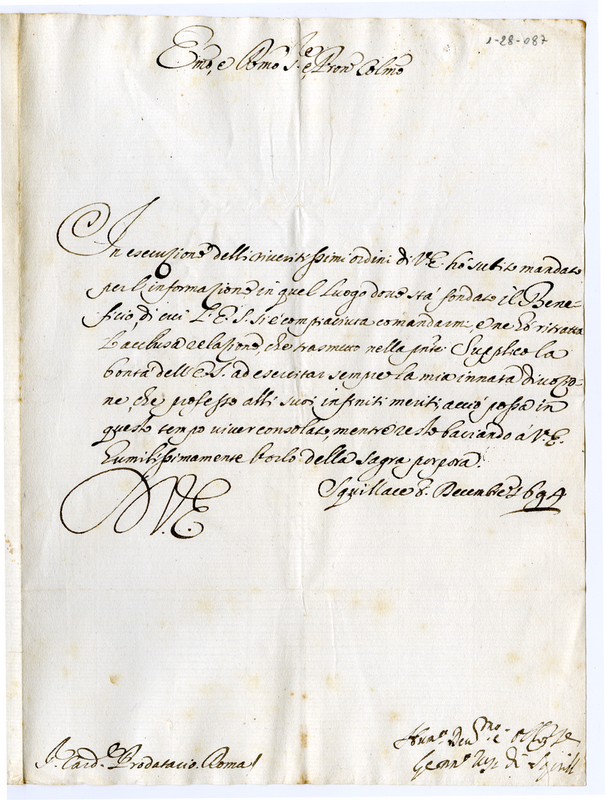 1-28-087
Emo, e Rmo Sre, e Pron Colmo
In esecuzione delli riveritissimi ordini di V.E. hò subito mandato
per l'informazione in quel luogo dove stà fondato il Bene-
ficio, di cui l'E.S. si è compiaciuta comandarmi, e ne hò ritratta
l'acclusa relazione, che trasmetto nella pnte. Supplico la
bontà dell'E.S. ad esercitar sempre la mia innata divozio-
ne, che professo alli suoi infiniti meriti, acciò possa in
questo tempo viver consolato, mentre resto baciando à V.E.
humilissimamente l'orlo della sagra porpora.
Squillace 8. Decembre 1694
D.V.E.
S. Card. Prodatario. Roma
Humo Devmo e
Genno di Squill